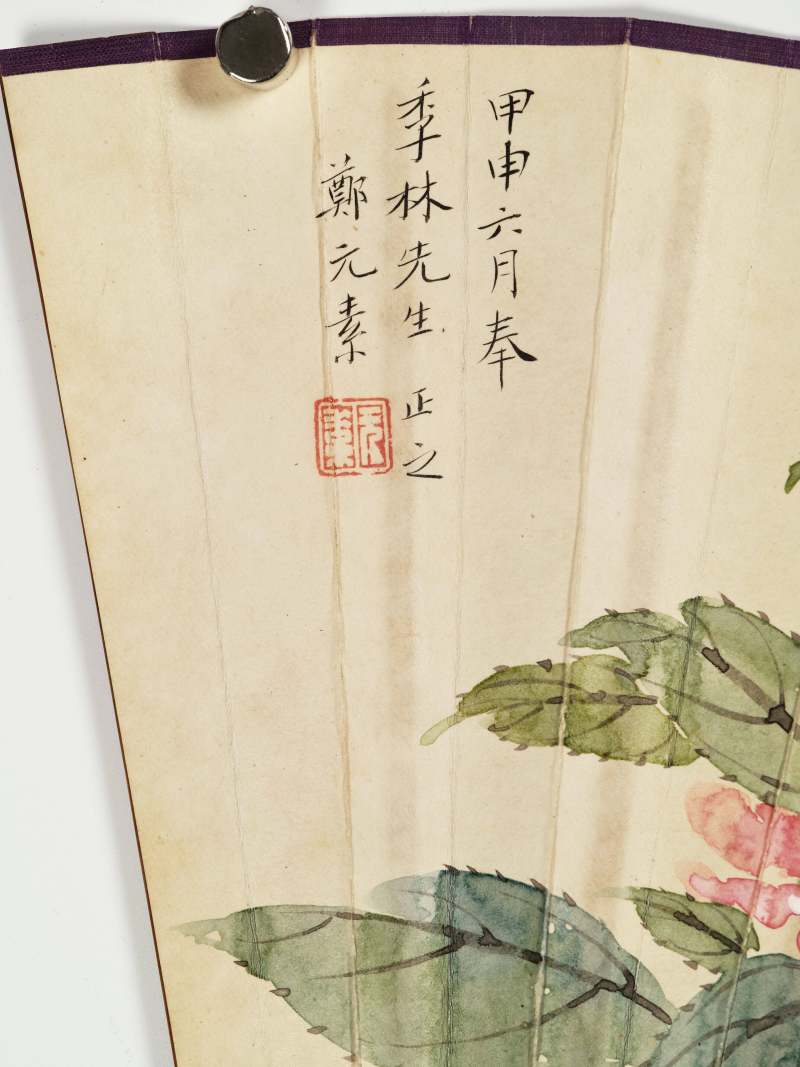 甲申六月奉
季林先生 正之
鄭元素
元素